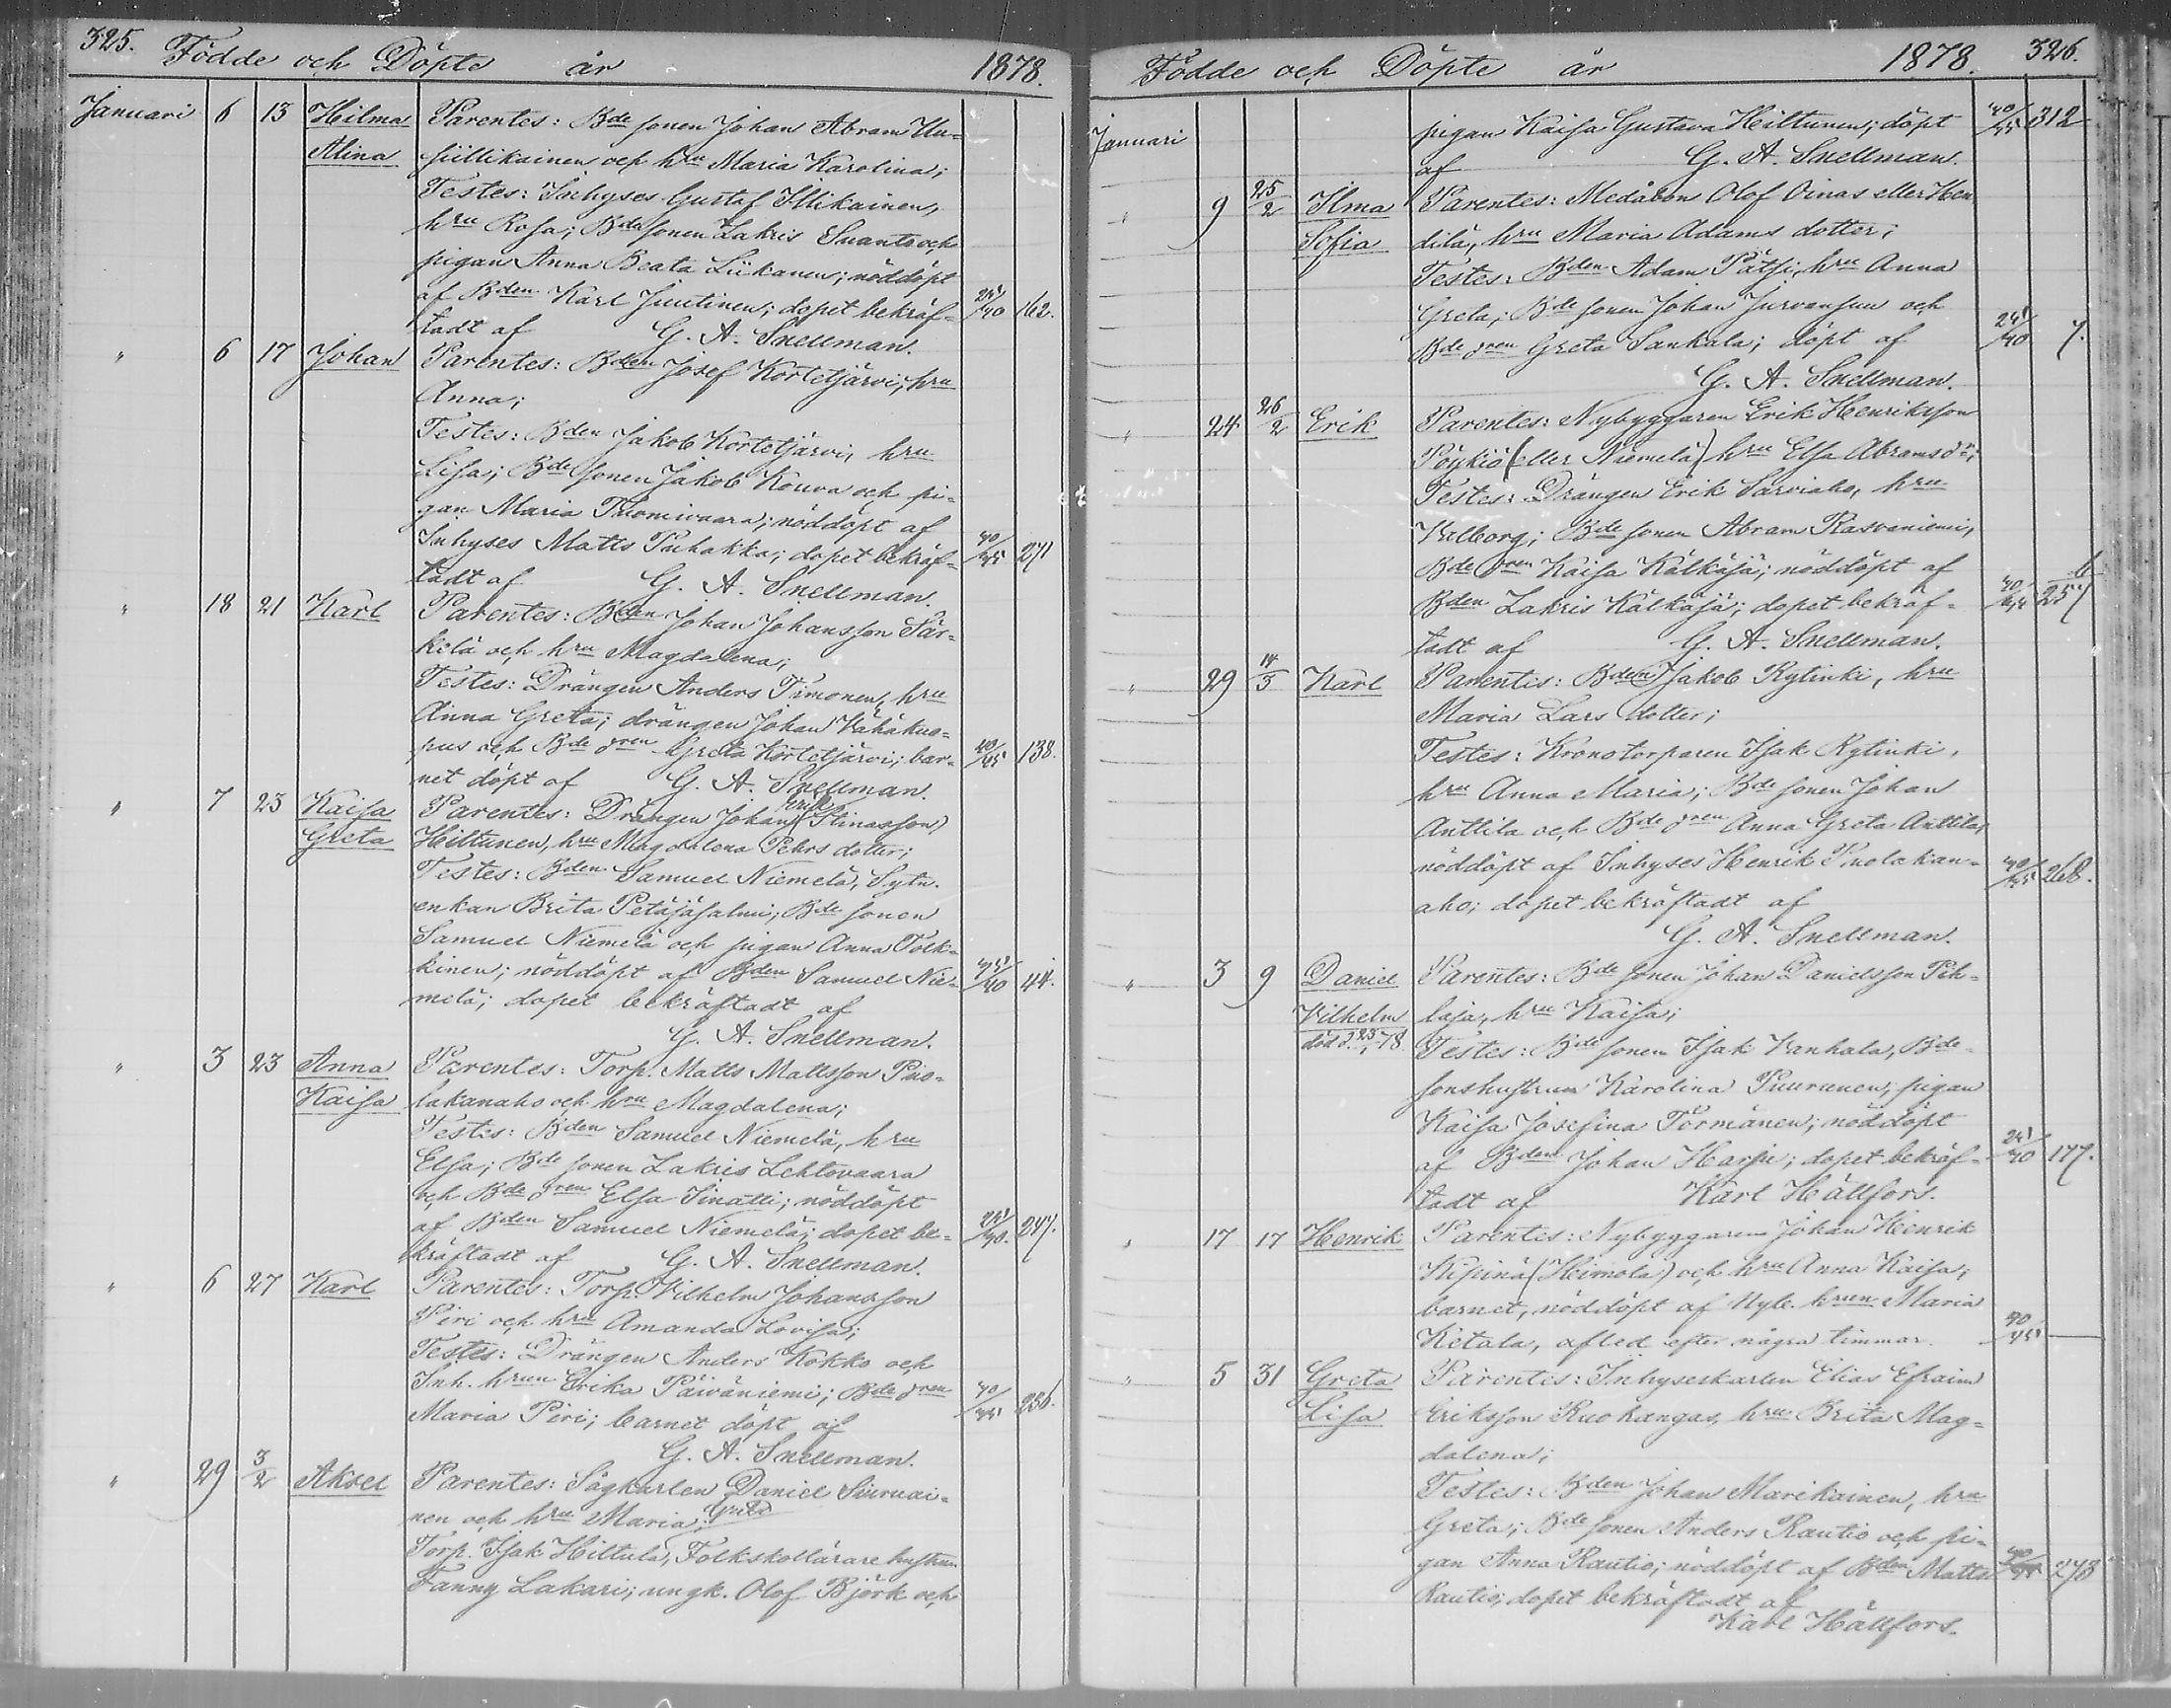 325. Födde och Döpte år 1878.
Januari 6 13 Hilma Parentes: Bde sonen Johan Abram Uu-
Alina siillikainen och hru Maria Karolina;
Testes: Inhyses Gustaf Illikainen,
hru Rosa; Bde sonen Zakris Suanto och
pigan Anna Beata Liikanen; nöddöpt
af Bden Karl Juutinen; dopet bekräf- 162.
tadt af G. A. Snellman.
" 6 17 Johan Parentes: Bden Josef Kortetjärvi, hru
Anna;
Testes: Bden Jakob Kortetjärvi, hru
Lisa; Bde sonen Jakob Kouva och pi-
gan Maria Tuomivaara; nöddöpt af
Inhyses Matts Puhakka; dopet bekräf- 40/45 271
tadt af G. A. Snellman.
" 18 21 Karl Parentes: Bden Johan Johansson Sär-
kelä och hru Magdalena;
Testes: Drängen Anders Timonen, hru
Anna Greta; drängen Johan Vähäkuo-
pus och Bde dren Greta Kortetjärvi; bar- 40/45 138.
net döpt af G. A. Snellman.
" 7 23 Kaisa Parentes: Drängen Johan Erik (Stinasson)
Greta Hiltunen, hru Magdalena Pehrs dotter;
Testes: Bden Samuel Niemelä, Sytn.
enkan Brita Petäjäsalmi; Bde sonen
Samuel Niemelä och pigan Anna Polk-
kinen; nöddöpt af Bden Samuel Nie- 44.
melä; dopet bekräftadt af
G. A. Snellman.
" 3 23 Anna Parentes: Torp. Matts Mattsson Puo-
Kaisa lakanaho och hru Magdalena;
Testes: Bden Samuel Niemelä, hru
Elsa; Bde sonen Zakris Lehtovaara
och Bde dren Elsa Sinatti; nöddöpt
af Bden Samuel Niemelä; dopet be- 247.
kräftadt af G. A. Snellman.
" 6 27 Karl Parentes: Torp. Vilhelm Johansson
Piri och hru Amanda Lovisa;
Testes: Drängen Anders Kokko och
Inh. hrun Erika Päiväniemi; Bde dren 40/45 256.
Maria Piri; barnet döpt af
G. A. Snellman.
" 29 3/2 Aksel Parentes: Sågkarlen Daniel Siiruai-
nen och hru Maria Greta
Torp. Isak Hiltula, Folkskollärare hustrun
Fanny Lakari; ungk. Olof Björk och
Födde och Döpte år 1878. 326.
Januari pigan Kaisa Gustava Hiltunen; döpt 40/45 312
af G. A. Snellman.
" 9 25/2 Ilma Parentes: Medåbon Olof Oinas eller Hen
Sofia dilä, hru Maria Adams dotter;
Testes: Bden Adam Pätsi, hru Anna
Greta; Bde sonen Johan Jurvansuu och
Bde dren Greta Sankala; döpt af 7.
G. A. Snellman.
" 24 26/2 Erik Parentes: Nybyggaren Erik Henriksson
Pöykiö (eller Niemelä) hru Elsa Abramsdr;
Testes: Drängen Erik Sarviaho, hru
Valborg; Bde sonen Abram Rasvaniemi,
Bde dren Kaisa Kälkäjä; nöddöpt af
Bden Zakris Kälkäjä; dopet bekräf-
tadt af G. A. Snellman.
" 29 14/3 Karl Parentes: Bden Jakob Rytinki, hru
Maria Lars dotter;
Testes: Kronotorparen Isak Rytinki,
hru Anna Maria; Bde sonen Johan
Anttila och Bde dren Anna Greta Anttila,
nöddöpt af Inhyses Henrik Puolakan- 40/45 268.
aho; dopet bekräftadt af
G. A. Snellman.
" 3 9 Daniel Parentes: Bde sonen Johan Danielsson Pih-
Vilhelm laja, hru Kaisa;
död d. 23/1 78. Testes: Bde sonen Isak Vanhala, Bde-
sonshustrun Karolina Puurunen; pigan
Kaisa Josefina Törmänen; nöddöpt
af Bden Johan Harju; dopet bekräf- 177.
tadt af Karl Hällfors.
" 17 17 Henrik Parentes: Nybyggaren Johan Henrik
Kipinä (Heimola) och hru Anna Kaisa;
barnet, nöddöpt af Nyb. hrun Maria
Ketola, afled efter några timmar. 40/45
" 5 31 Greta Parentes: Inhyseskarlen Elias Efraim
Lisa Eriksson Ruokangas, hru Brita Mag-
dalena;
Testes: Bden Johan Marikainen, hru
Greta; Bde sonen Anders Rautio och pi-
gan Anna Rautio; nöddöpt af Bden Matts 40/45 278
Rautio; dopet bekräftadt af
Karl Hällfors.